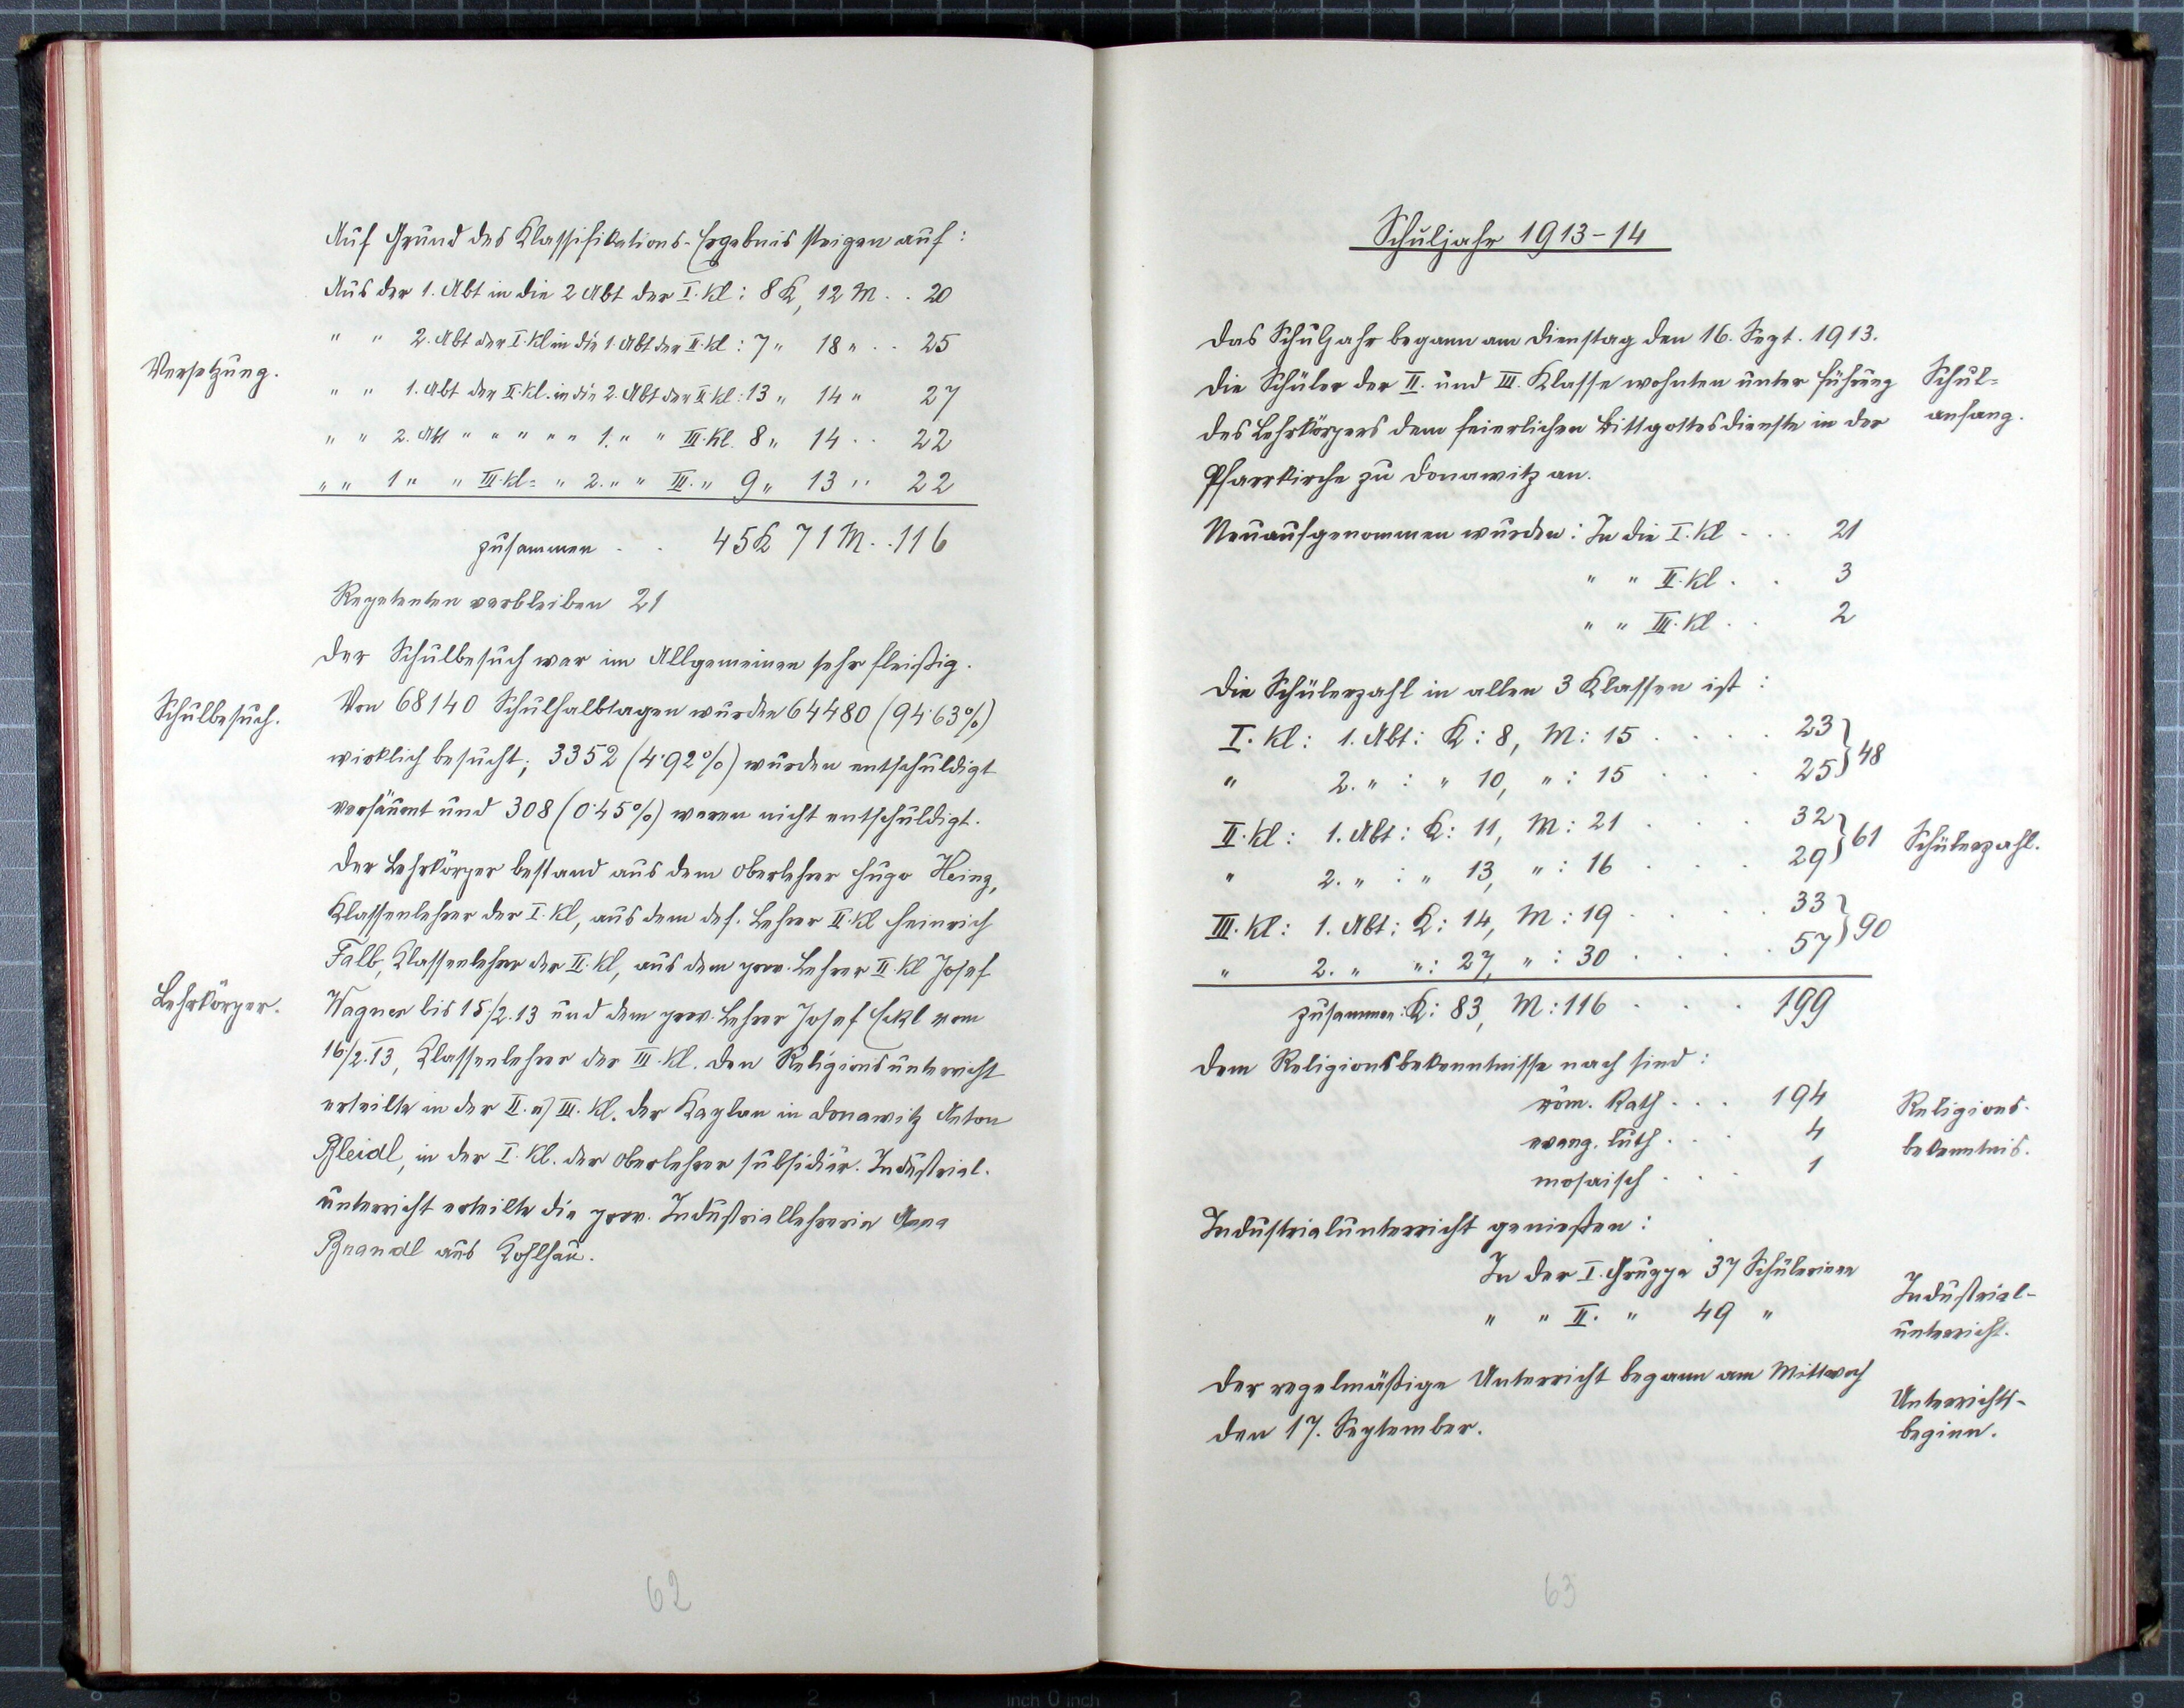 Auf Grund des Klassifikations-Ergebnis steigen auf:
Aus der 1. Abt in die 2 Abt der I. Kl: 8 K, 12 M . . 20
" " 2. Abt der I. Kl in die 1. Abt der II. Kl: 7 " 18 " . . 25
Versetzung.
" " 1. Abt der II. Kl. in die 2. Abt der II Kl: 13 " 14 " 27
" " 2. Abt " " " " " 1. " " III. Kl. 8 " 14 . . 22
" " 1 " " III. Kl = " 2. " " III. " 9 " 13 " 22
zusammen . . 45 K 71 M . . 116
Repetenten verbleiben 21
Der Schulbesuch war im Allgemeinen sehr fleißig.
Schulbesuch.
Von 68140 Schulhalbtagen wurden 64480 (94·63%)
wirklich besucht; 3352 (4·92%) wurden entschuldigt
versäumt und 308 (0·45%) waren nicht entschuldigt.
Der Lehrkörper bestand aus dem Oberlehrer Hugo Heinz,
Klassenlehrer der I. Kl, aus dem def. Lehrer II. Kl Heinrich
Falb, Klassenlehrer der II. Kl, aus dem prov. Lehrer II. Kl Josef
Lehrkörper.
Wagner bis 15/2.13 und dem prov. Lehrer Josef Eckl vom
16/2.13, Klassenlehrer der III. Kl. Den Religionsunterricht
erteilte in der II. u III. Kl. der Kaplan in Donawitz Anton
Pleidl, in der I. Kl. der Oberlehrer subsidiär. Industrial-
unterricht erteilte die prov. Industriallehrerin Anna
Brandl aus Kohlhau.
62
Schuljahr 1913-14
Das Schuljahr begann am Dienstag den 16. Sept. 1913.
Die Schüler der II. und III. Klasse wohnten unter Führung
des Lehrkörpers dem feierlichen Bittgottesdienste in der
Pfarrkirche zu Donawitz an.
Schul=
anfang.
Neuaufgenommen wurden: In die I. Kl . . . 21
" " II. Kl . . 3
" " III. Kl . . 2
Die Schülerzahl in allen 3 Klassen ist:
I. Kl: 1. Abt: K: 8, M: 15 . . . . 23
" 2. " : " 10, " : 15 . . . 25 } 48
II. Kl: 1. Abt: K: 11, M: 21 . . . 32
" 2. " : " 13, " : 16 . . . 29 } 61
Schülerzahl.
III. Kl: 1. Abt: K: 14, M: 19 . . . . 33
" 2. " " : 27, " : 30 . . . . 57 } 90
zusammen: K: 83, M: 116 . . . 199
Dem Religionsbekenntnisse nach sind:
röm. Kath . . . 194
evang. luth . . . 4
mosaisch . . . 1
Religions-
bekenntnis.
Industrialunterricht genießen:
In der I. Gruppe 37 Schülerinen
" " II. " 49 "
Industrial-
unterricht.
Der regelmäßige Unterricht begann am Mittwoch
den 17. September.
Unterrichts-
beginn.
63
inch 0 inch